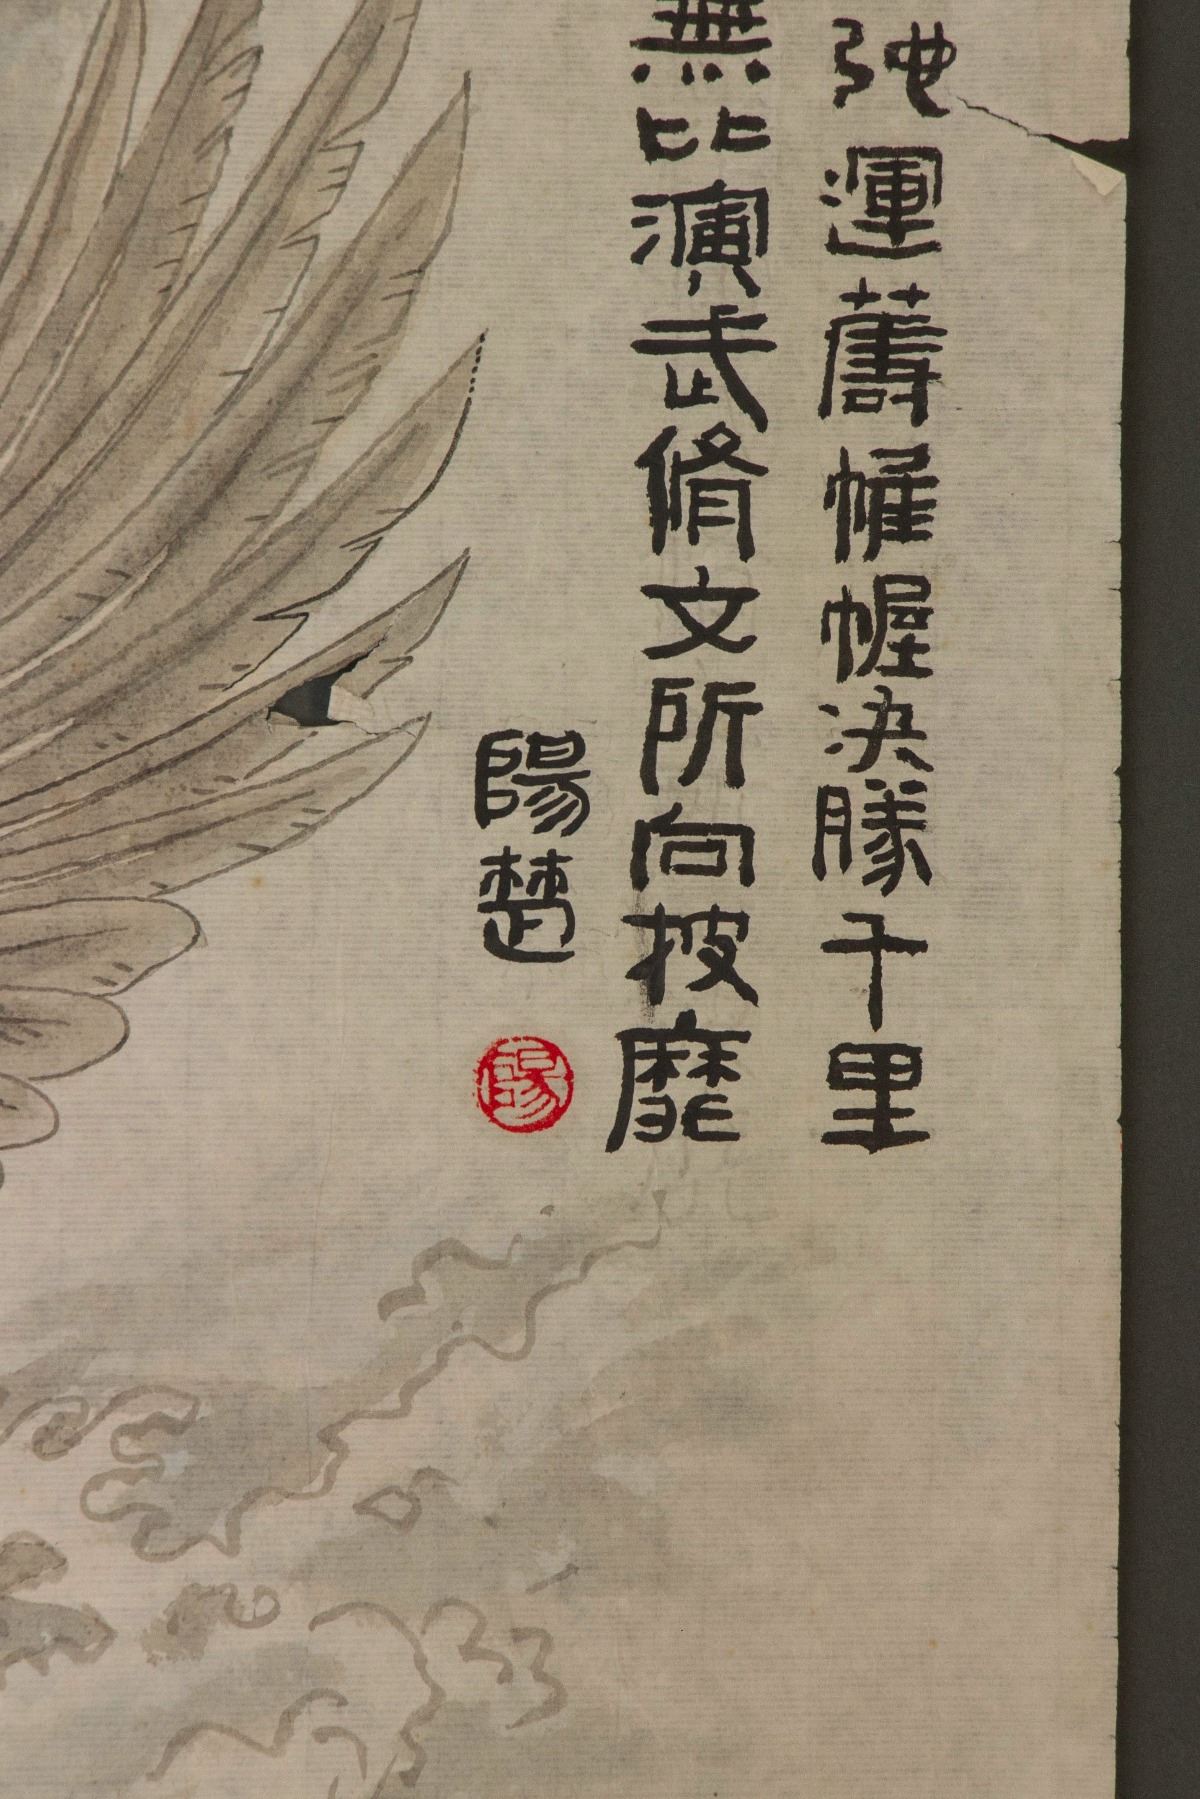 弛運籌帷幄決勝千里
無比演武脩文所向披靡
陽楚
陽